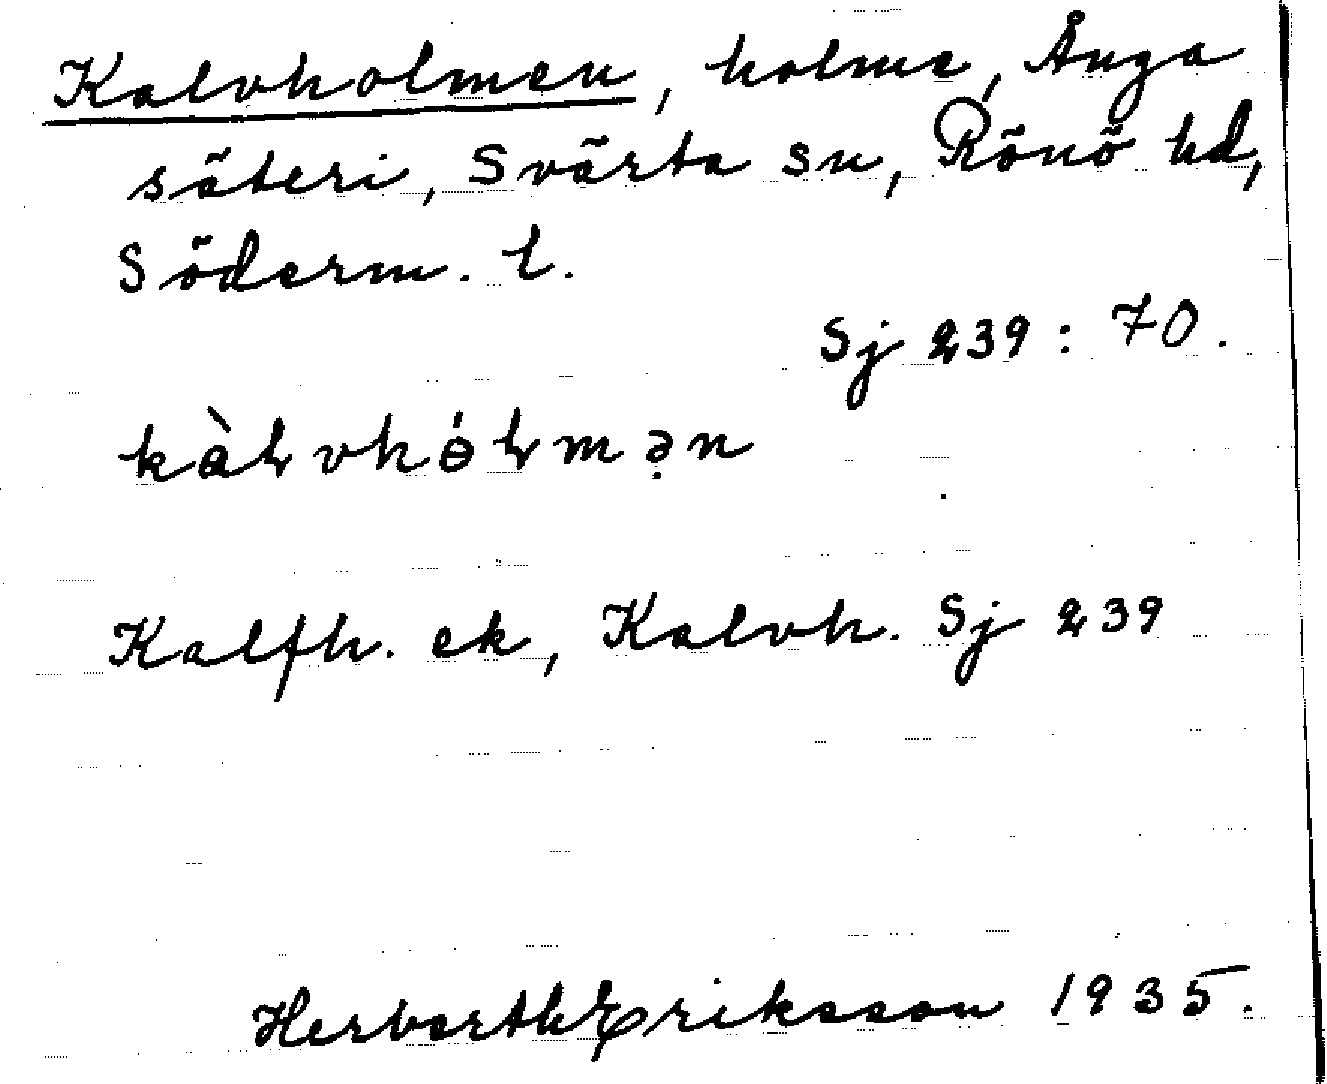 Kalvholmen, holme, Ånga
säteri, Svärta sn, Rönö hd,
Söderm. l.
Sj 239 : 70.
kàɫvhó̵ɫmən
Kalfh. ek, Kalvh. Sj 239
Herbert Eriksson 1935.